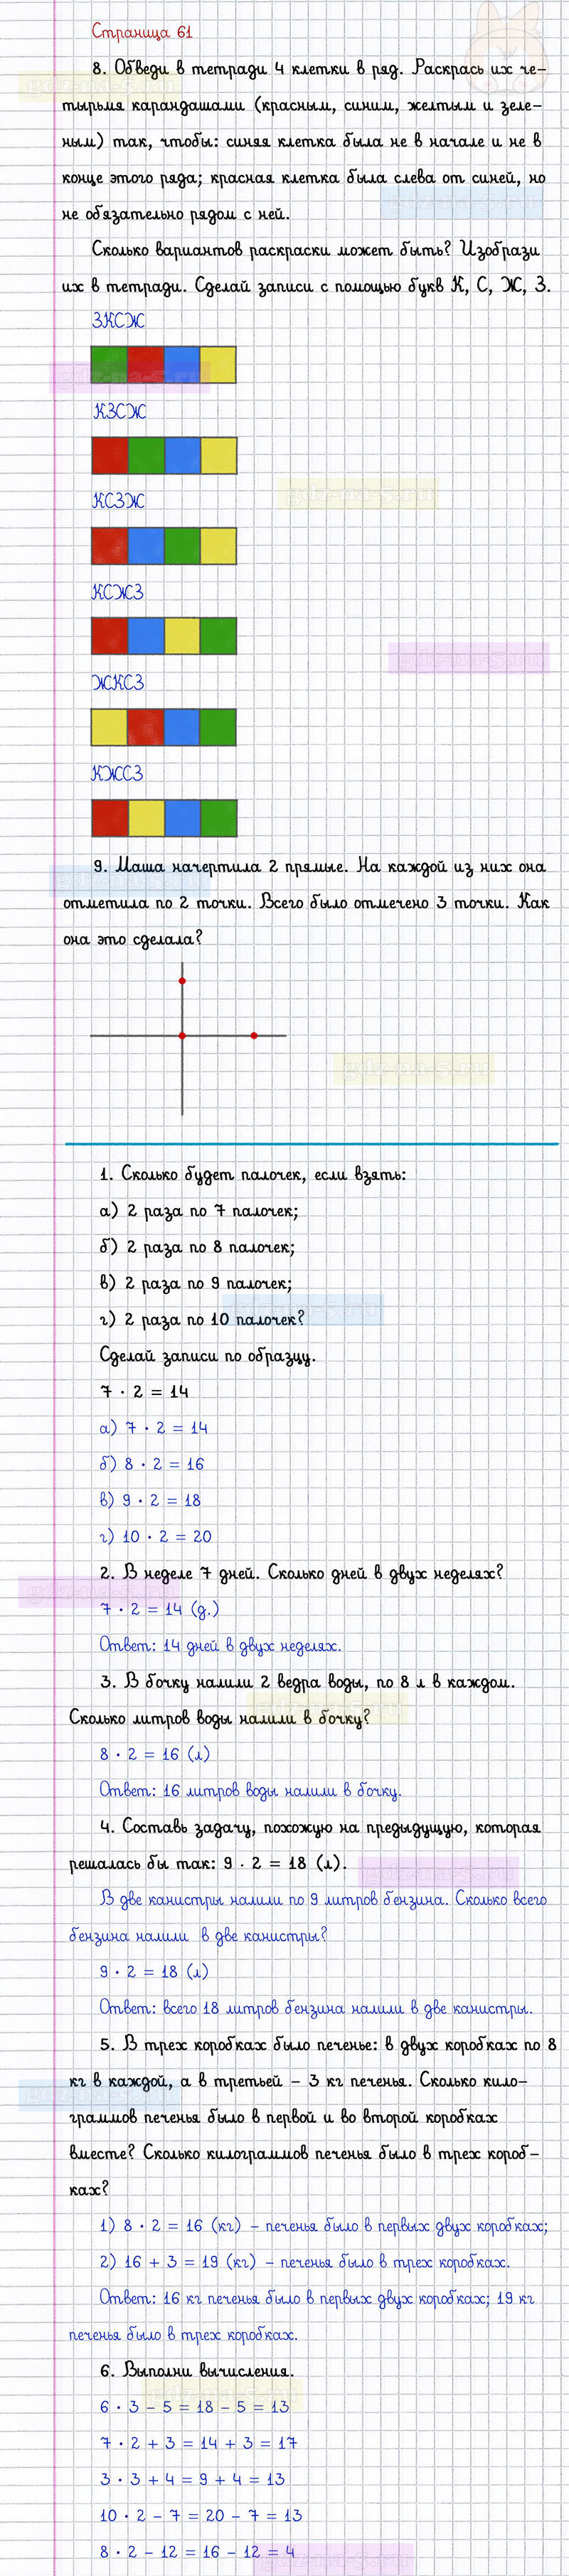 Страница 61
8. Обведи в тетради 4 клетки в ряд. Раскрась их че-
тырьмя карандашами (красным, синим, желтым и зеле-
ным) так, чтобы: синяя клетка была не в начале и не в
конце этого ряда; красная клетка была слева от синей, но
не обязательно рядом с ней.
Сколько вариантов раскраски может быть? Изобрази
их в тетради. Сделай записи с помощью букв К, С, Ж, З.
ЗКСЖ
gdz-na-5.ru
КЗСЖ
gdz-na-5.ru
КСЗЖ
КСЖЗ
gdz-na-5.ru
ЖКСЗ
КЖСЗ
9. Маша начертила 2 прямые. На каждой из них она
отметила по 2 точки. Всего было отмечено 3 точки. Как
она это сделала?
gdz-na-5.ru
1. Сколько будет палочек, если взять:
а) 2 раза по 7 палочек;
б) 2 раза по 8 палочек;
в) 2 раза по 9 палочек;
г) 2 раза по 10 палочек?
Сделай записи по образцу.
7 · 2 = 14
а) 7 · 2 = 14
б) 8 · 2 = 16
в) 9 · 2 = 18
г) 10 · 2 = 20
2. В неделе 7 дней. Сколько дней в двух неделях?
7 · 2 = 14 (д.)
Ответ: 14 дней в двух неделях.
3. В бочку налили 2 ведра воды, по 8 л в каждом.
Сколько литров воды налили в бочку?
8 · 2 = 16 (л)
Ответ: 16 литров воды налили в бочку.
4. Составь задачу, похожую на предыдущую, которая
решалась бы так: 9 · 2 = 18 (л).
В две канистры налили по 9 литров бензина. Сколько всего
бензина налили в две канистры?
9 · 2 = 18 (л)
Ответ: всего 18 литров бензина налили в две канистры.
5. В трех коробках было печенье: в двух коробках по 8
кг в каждой, а в третьей – 3 кг печенья. Сколько кило-
граммов печенья было в первой и во второй коробках
вместе? Сколько килограммов печенья было в трех короб-
ках?
1) 8 · 2 = 16 (кг) – печенья было в первых двух коробках;
2) 16 + 3 = 19 (кг) – печенья было в трех коробках.
Ответ: 16 кг печенья было в первых двух коробках; 19 кг
печенья было в трех коробках.
6. Выполни вычисления.
6 · 3 – 5 = 18 – 5 = 13
7 · 2 + 3 = 14 + 3 = 17
3 · 3 + 4 = 9 + 4 = 13
10 · 2 – 7 = 20 – 7 = 13
8 · 2 – 12 = 16 – 12 = 4